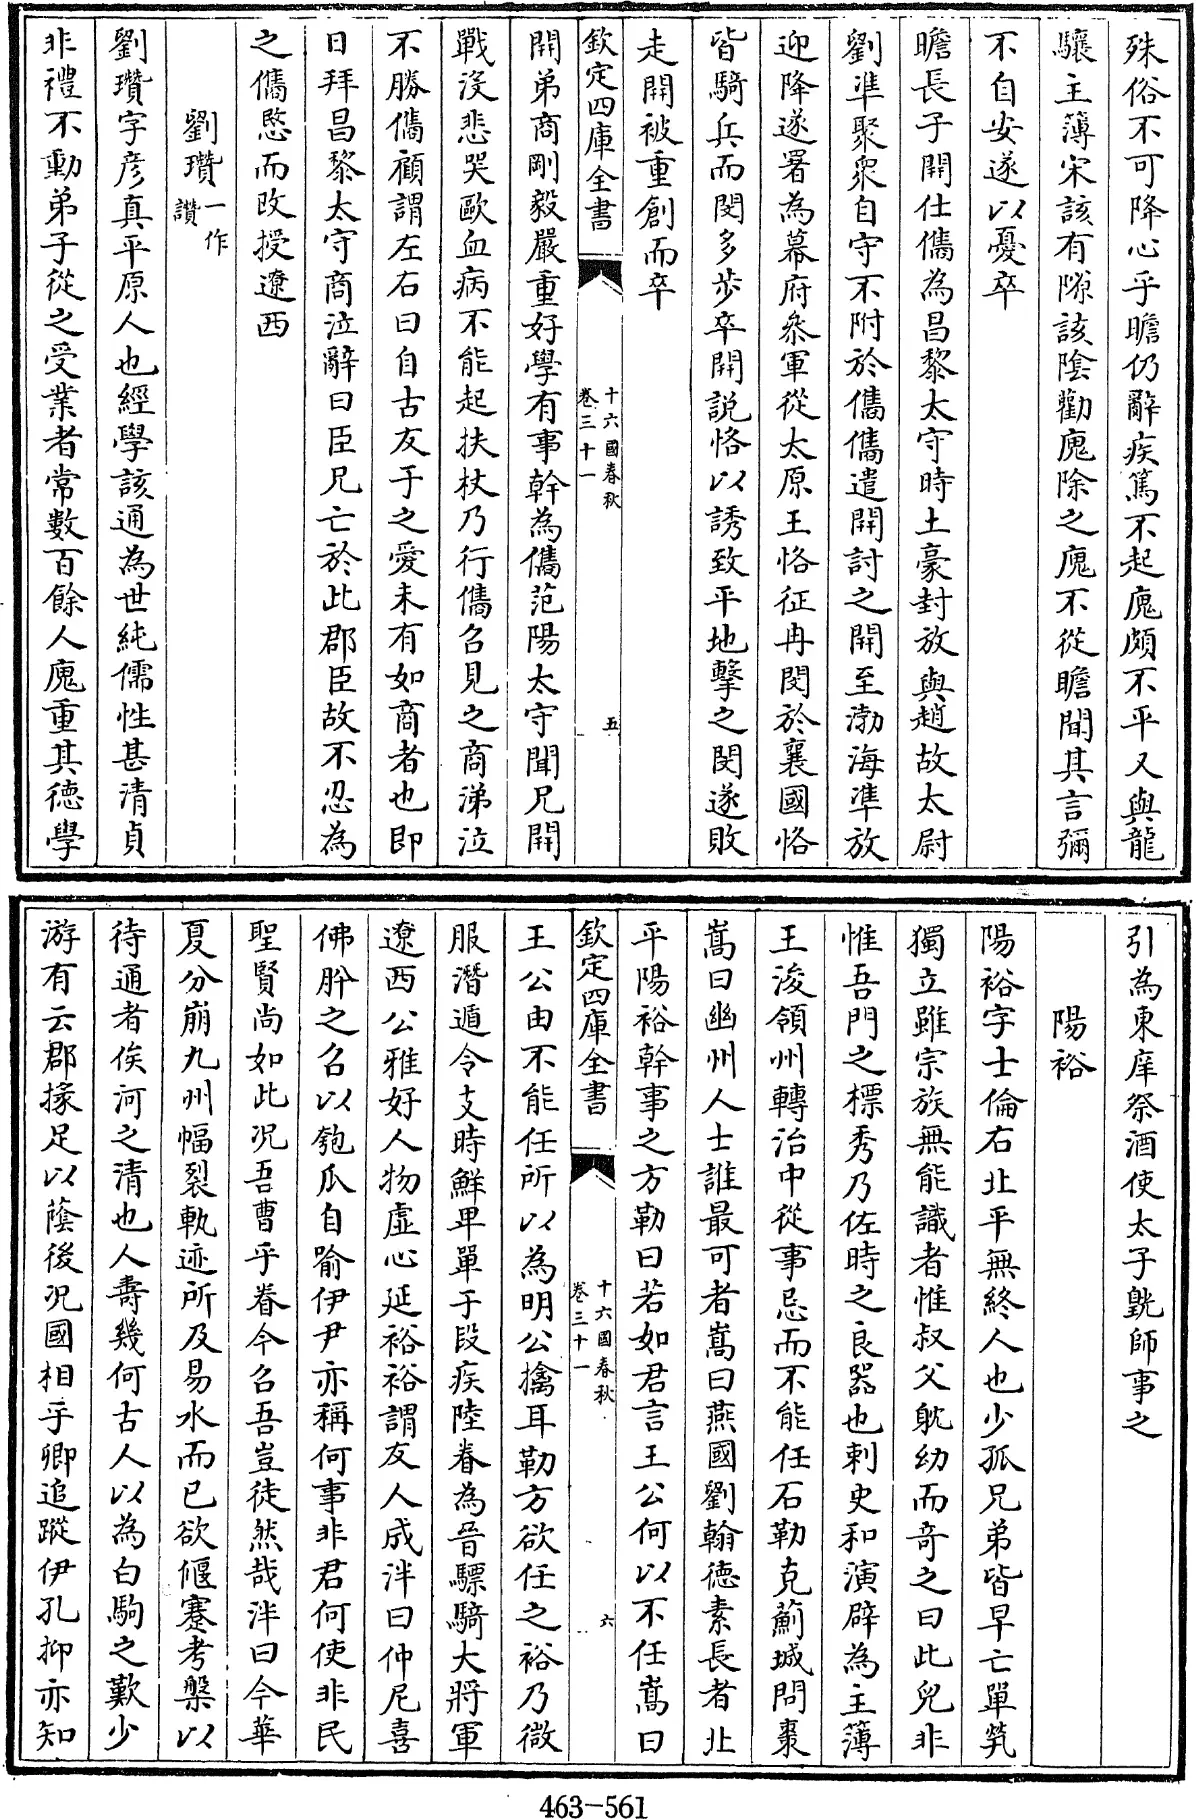 殊俗不可降心乎瞻仍辭疾篤不起廆頗不平又與龍
驤主簿宋該有隙該陰勸廆除之廆不從瞻聞其言彌
不自安遂以憂卒
瞻長子開仕儁為昌黎太守時土豪封放與趙故太尉
劉準聚衆自守不附於儁儁遣開討之開至渤海準放
迎降遂署為幕府叅軍從太原王恪征冉閔於襄國恪
皆騎兵而閔多步卒開説恪以誘致平地擊之閔遂敗
走開被重創而卒
欽定四庫全書
十六國春秋
卷三十一
五
開弟商剛毅嚴重好學有事幹為儁范陽太守聞兄開
戰沒悲哭歐血病不能起扶杖乃行儁召見之商涕泣
不勝儁顧謂左右曰自古友于之愛未有如商者也即
日拜昌黎太守商泣辭曰臣兄亡於此郡臣故不忍為
之儁愍而改授遼西
劉瓚一作讚
劉瓚字彦真平原人也經學該通為世純儒性甚清貞
非禮不動弟子從之受業者常數百餘人廆重其德學
引為東庠祭酒使太子皝師事之
陽裕
陽裕字士倫右北平無終人也少孤兄弟皆早亡單煢
獨立雖宗族無能識者惟叔父躭幼而竒之曰此兒非
惟吾門之標秀乃佐時之良器也刺史和演辟為主簿
王浚領州轉治中從事忌而不能任石勒克薊城問棗
嵩曰幽州人士誰最可者嵩曰燕國劉翰德素長者北
平陽裕幹事之才勒曰若如君言王公何以不任嵩曰
欽定四庫全書
十六國春秋
卷三十一
六
王公由不能任所以為明公擒耳勒方欲任之裕乃微
服潛遁令支時鮮卑單于段疾陸眷為晉驃騎大將軍
遼西公雅好人物虛心延裕裕謂友人成泮曰仲尼喜
佛肸之召以匏瓜自喻伊尹亦稱何事非君何使非民
聖賢尚如此况吾曹乎眷今召吾豈徒然哉泮曰今華
夏分崩九州幅裂軌迹所及易水而已欲偃蹇考槃以
待通者俟河之清也人壽幾何古人以為白駒之歎少
游有云郡掾足以蔭後况國相乎卿追蹤伊孔抑亦知
463-561